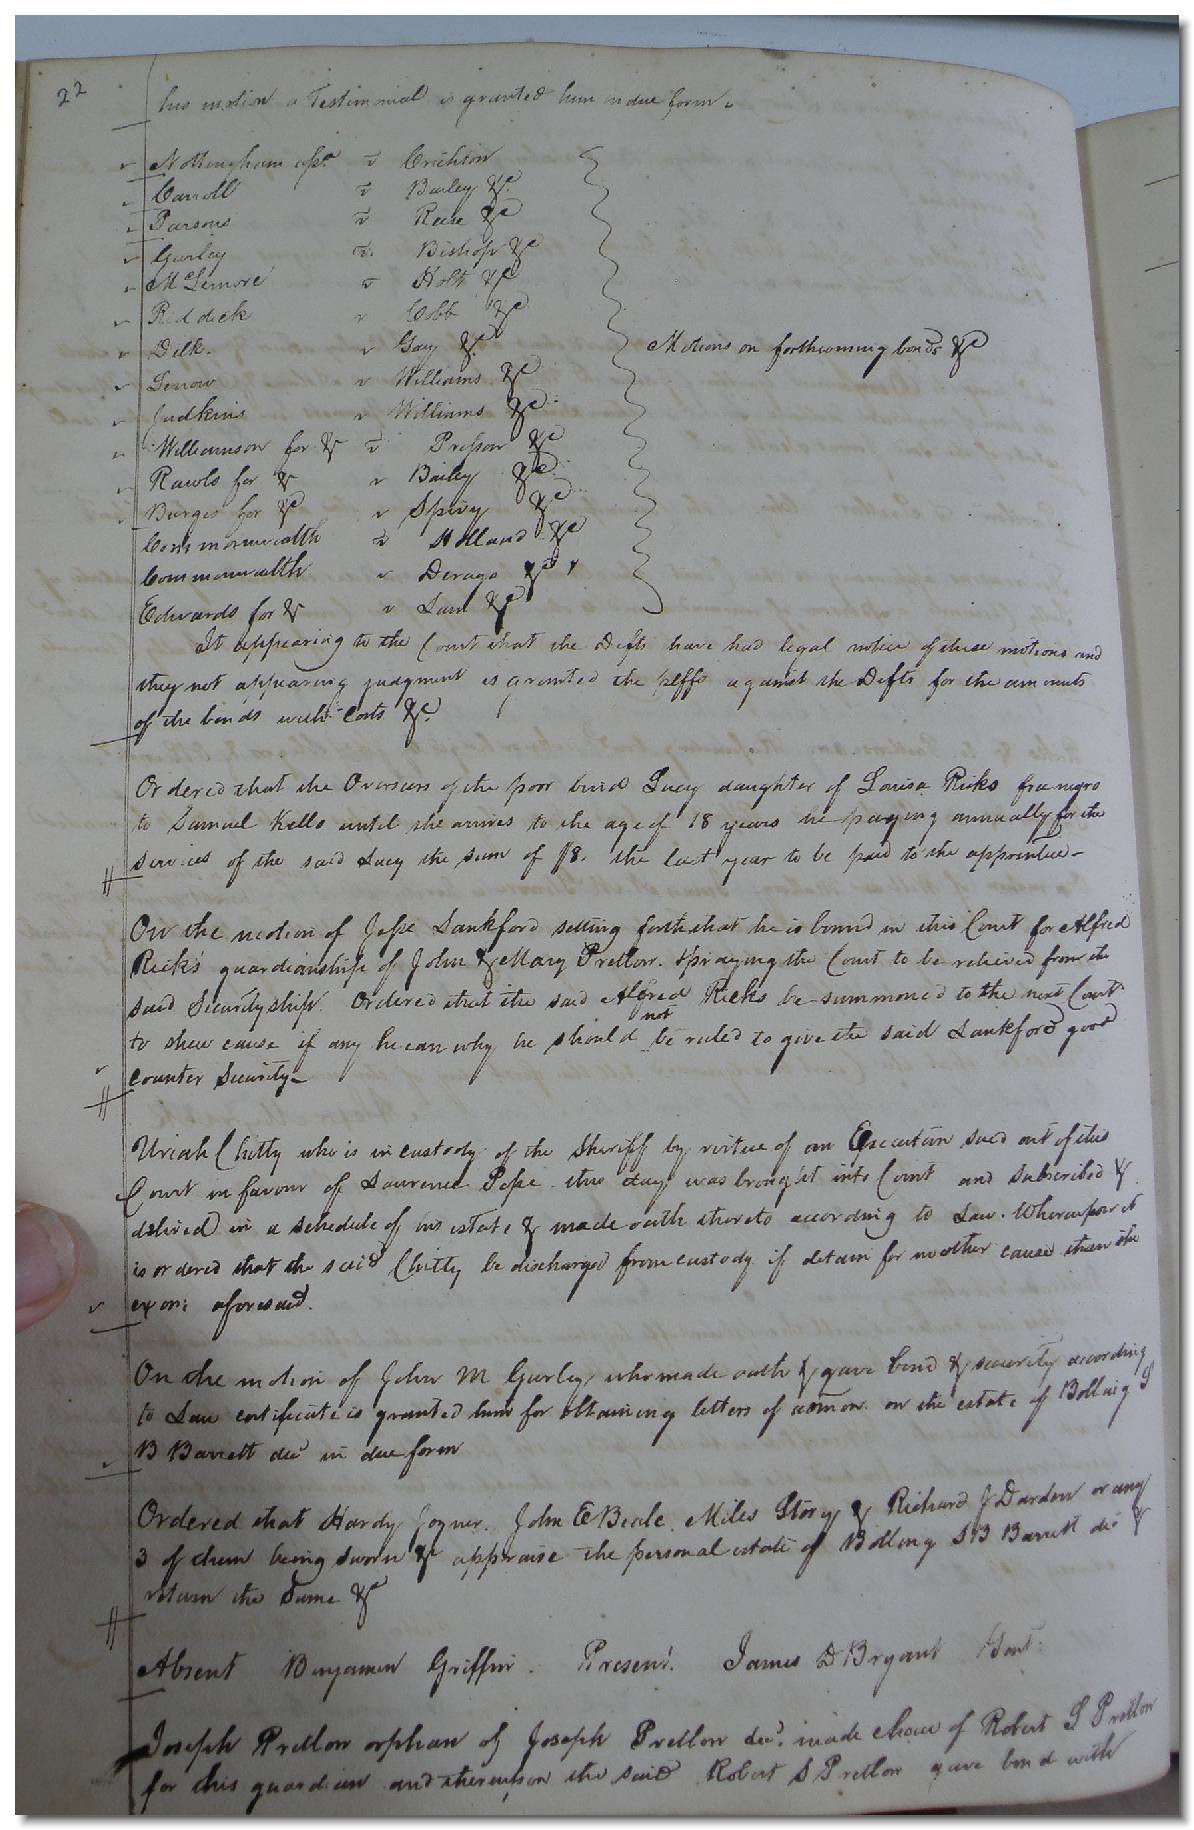 22
his motion a Testimonial is granted him in due form.
Nottingham assee v Crichton
Carroll v Bailey &c.
Parsons v Reese &c
Gurley v. Bishop &c
McLemore v Holt &c
Reddick v Cobb &c
Dilk. v Gay &c.
Lenow v Williams &c
Judkins v Williams &c
Motions on forthcoming bonds &c
Williamson for & v Presson &c
Rawls for & v Bailey &c
Burges for &c v Spivy &c
Commonwealth v Holland &c
Commonwealth v &c
Edwards for & v Law &c
It appearing to the Court that the Defts have had legal notice of these motions and
they not appearing judgment is granted the plffs against the Defts for the amounts
of the bonds with Costs &c.
Ordered that the Overseers of the poor bind Lucy daughter of Louisa Ricks free negro
to Samuel Kello until she arrives to the age of 18 years he paying annually for the
services of the said Lucy the sum of $8. the last year to be paid to the apprentice -
On the motion of Jesse Lankford setting forth that he is bound in this Court for Alfred
Ricks guardianship of John & Mary Pretlow. & praying the Court to be relieved from the
said Securityship. Ordered that the said Alfred Ricks be summoned to the next Court
to shew cause if any he can why he should not be ruled to give the said Lankford good
counter Security -
Uriah Chitty who is in custody of the Sheriff by virtue of an Execution sued out of this
Court in favour of Lawrence Pope this day was brought into Court and subscribed &
delivered in a schedule of his estate & made oath thereto according to Law. Whereupon it
is ordered that the said Chitty be discharged from custody if detain for no other cause than the
exon: aforesaid.
On the motion of John M Gurley who made oath & gave bond & security according
to Law certificate is granted him for obtaining letters of admon on the estate of Bolling S
B Barrett decd in due form
Ordered that Hardy Joyner. John E Beale. Miles Story & Richard J Darden or any
3 of them being sworn &c appraise the personal estate of Bolling S B Barrett decd &
return the same &c
Absent Benjamin Griffin. Present. James D Bryant Gent.
Joseph Pretlow orphan of Joseph Pretlow decd. made choice of Robert S Pretlow
for his guardian and thereupon the said Robert S Pretlow gave bond with